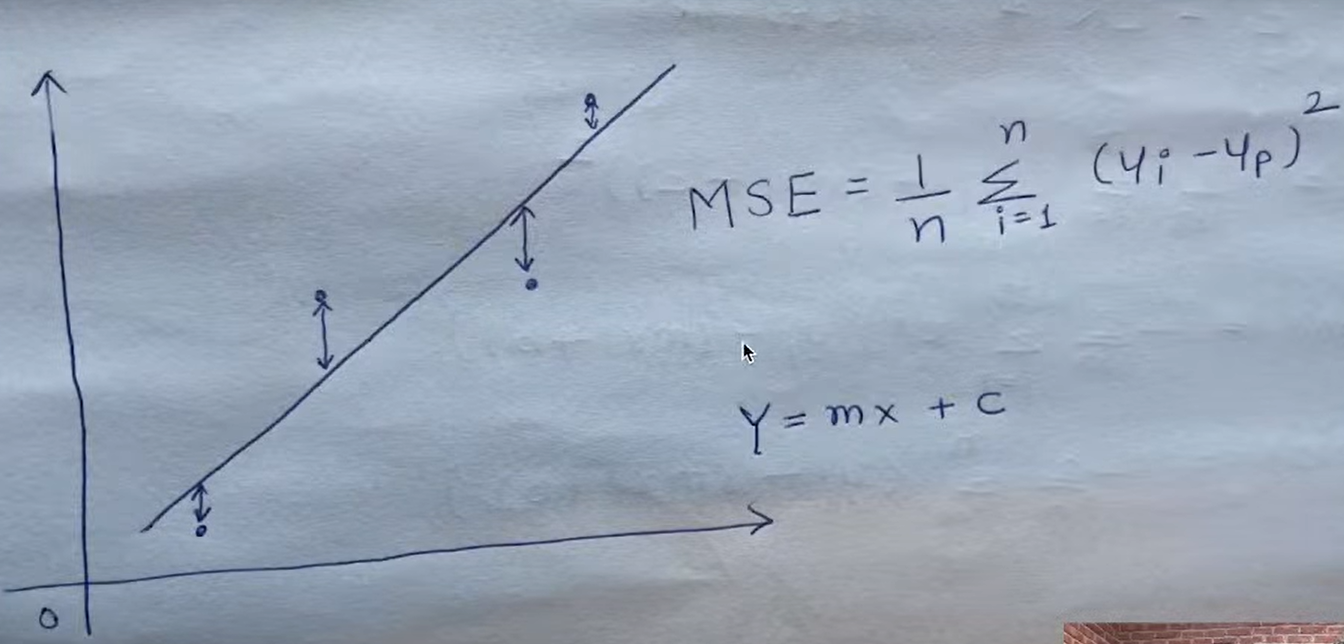 MSE = 1/n Σ_{i=1}^{n} (yi - yp)^2
Y = mx + c
0